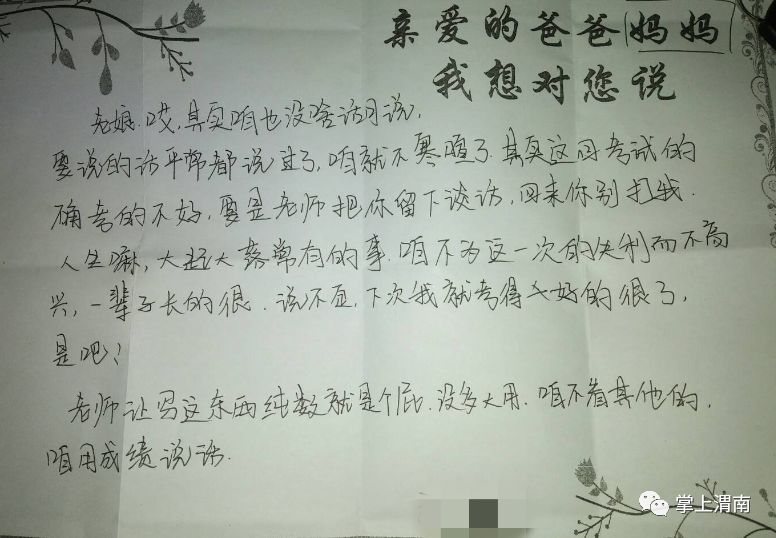 亲爱的爸爸妈妈
我想对您说
老娘.哎,其实咱也没啥话可说,
要说的话平常都说过了,咱就不寒喧了.其实这回考试的
确考的不好,要是老师把你留下谈话,回来你别打我.
人生嘛,大起大落常有的事.咱不为这一次的失利而不高
兴,一辈子长的很.说不正,下次我就考得好的很了,
是吧?
老师让写这东西纯数就是个屁.没多大用.咱不看其他的,
咱用成绩说话.
掌上渭南